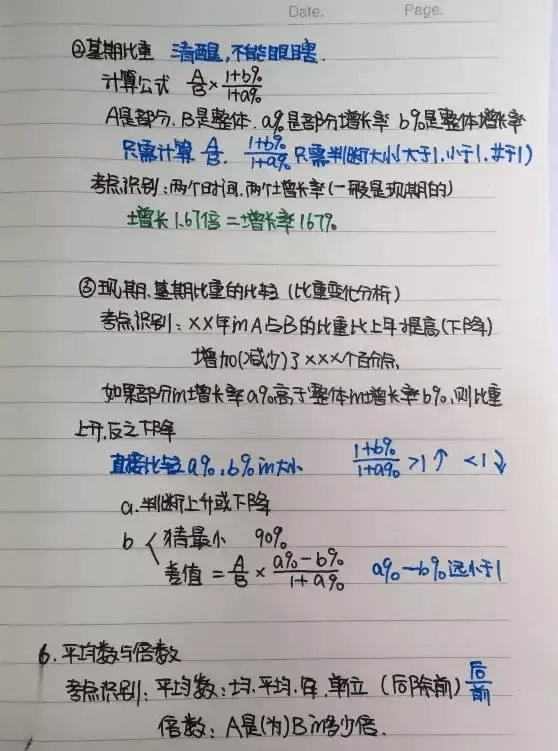 Date. Page.
②基期比重 清醒,不能眼瞎.
计算公式 A/B × 1+b%/1+a%
A是部分,B是整体.a%是部分增长率 b%是整体增长率
只需计算 A/B, 1+b%/1+a% 只需判断大小(大于1.小于1.等于1)
考点识别:两个时间.两个增长率(一般是现期的)
增长1.67倍=增长率167%
③现期.基期比重的比较(比重变化分析)
考点识别:××年的A占B的比重比上年提高(下降)
增加(减少)了×××个百分点
如果部分的增长率a%高于整体的增长率b%,则比重
上升,反之下降
直接比较a%,b%的大小 1+b%/1+a% >1↑ <1↓
a.判断上升或下降
b 猜最小 90%
差值 = A/B × a%-b%/1+a% a%-b%远小于1
6.平均数与倍数
考点识别:平均数:均.平均.每.单位(后除前) 后/前
倍数:A是(为)B的多少倍.